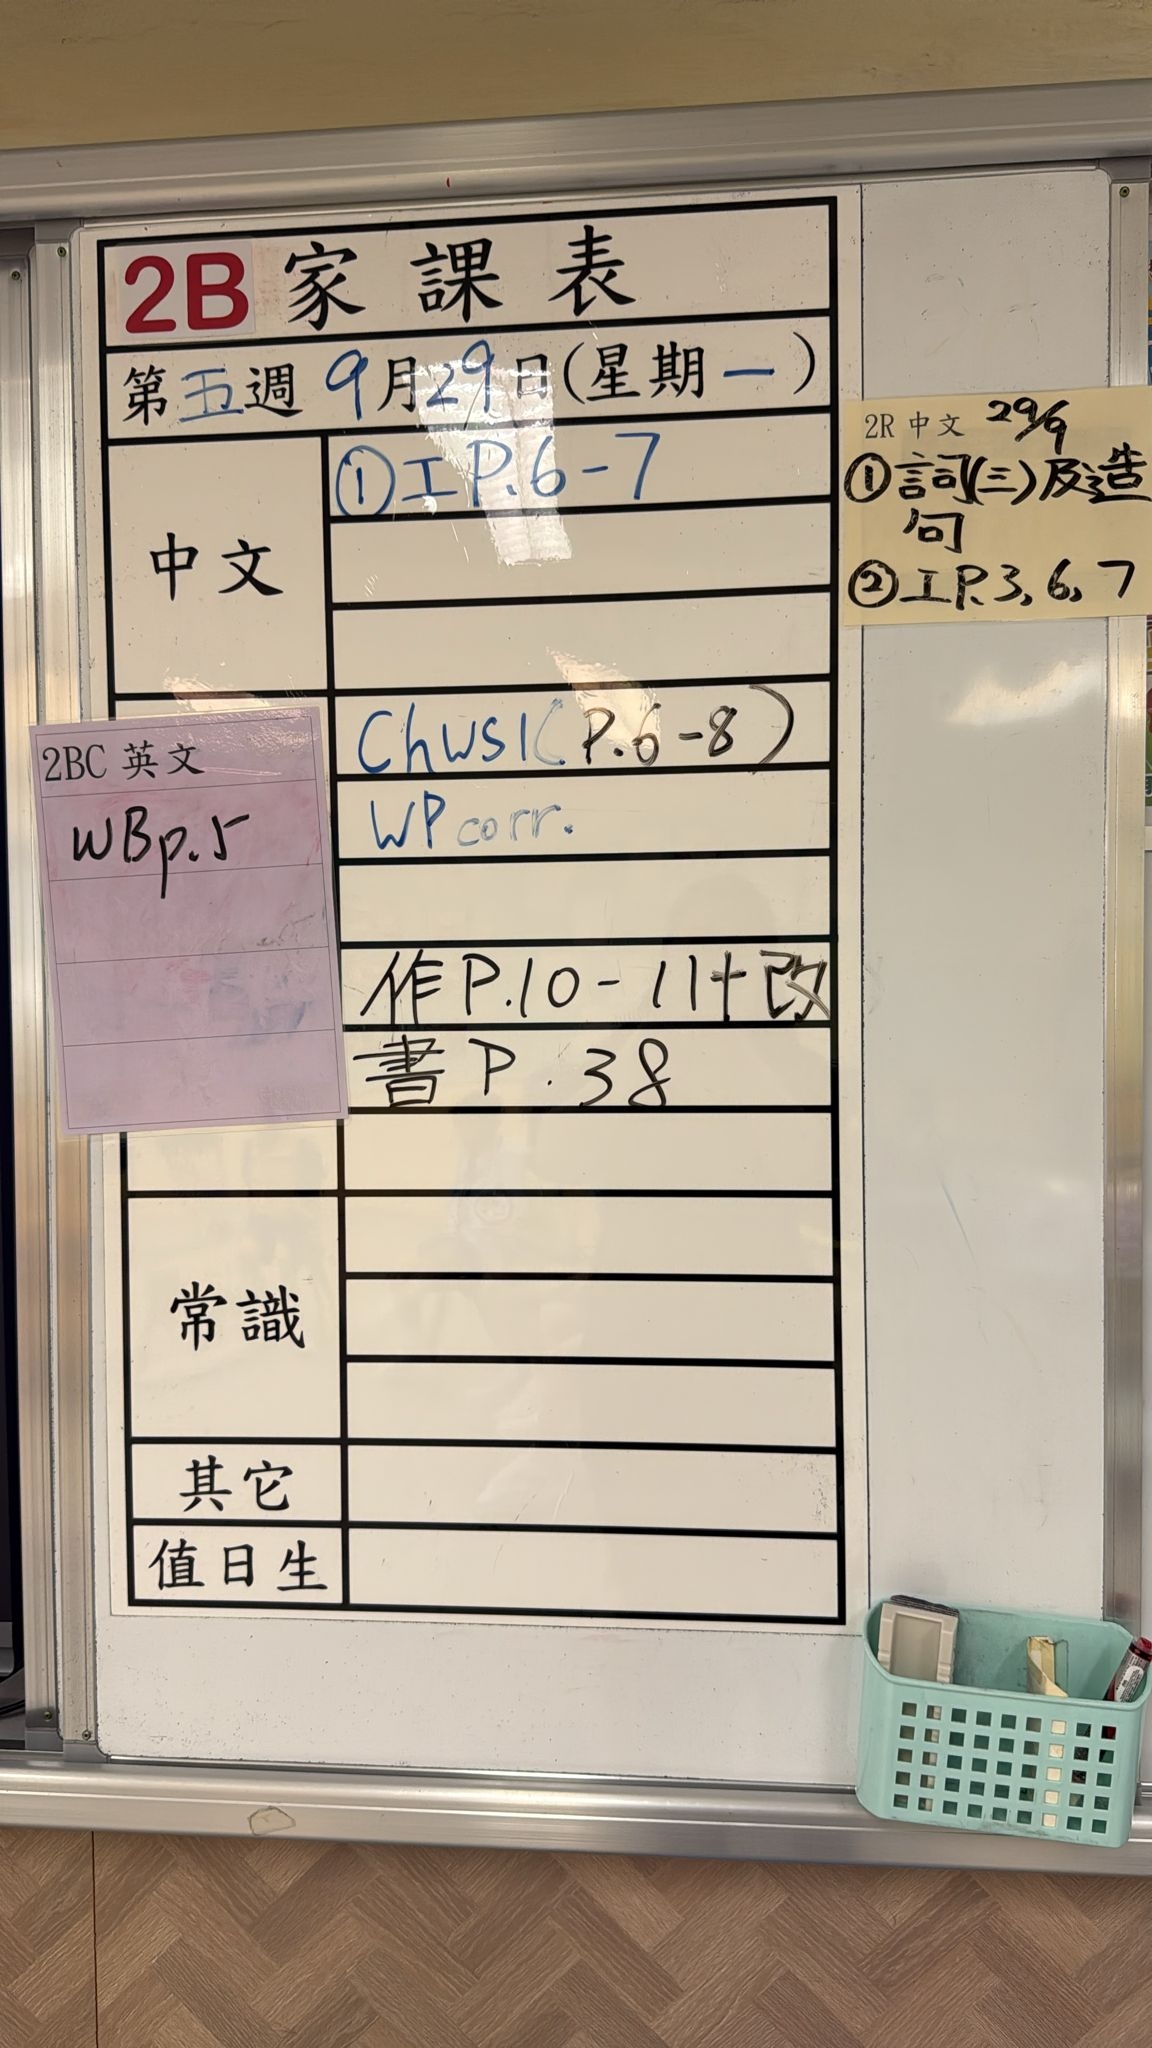 2B 家課表
第五週 9月29日(星期一)
中文
①工P.6-7
2R 中文 29/9
①詞(三)及造
句
②工P.3,6,7
2BC 英文
WBp.5
Ch WS1(P.6-8)
WP corr.
作P.10-11+改
書P.38
常識
其它
值日生